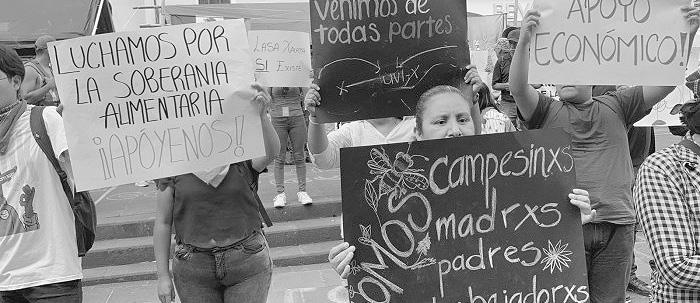 LUCHAMOS POR
LA SOBERANIA
ALIMENTARIA
¡¡APÓYENOS!!
LASA X
SI EXISTE
Venimos de
todas partes
UVI-X
APOYO
ECONÓMICO!
SOMOS
Campesinxs
madrxs
padres
trabajadorxs